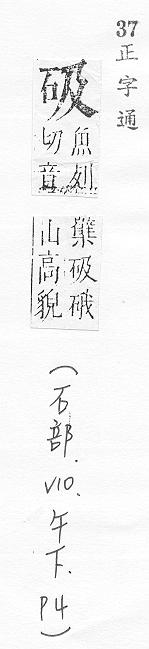 37正字通
砐魚列切音
櫱砐硪山高貌
(石部.V10.午下.P4)